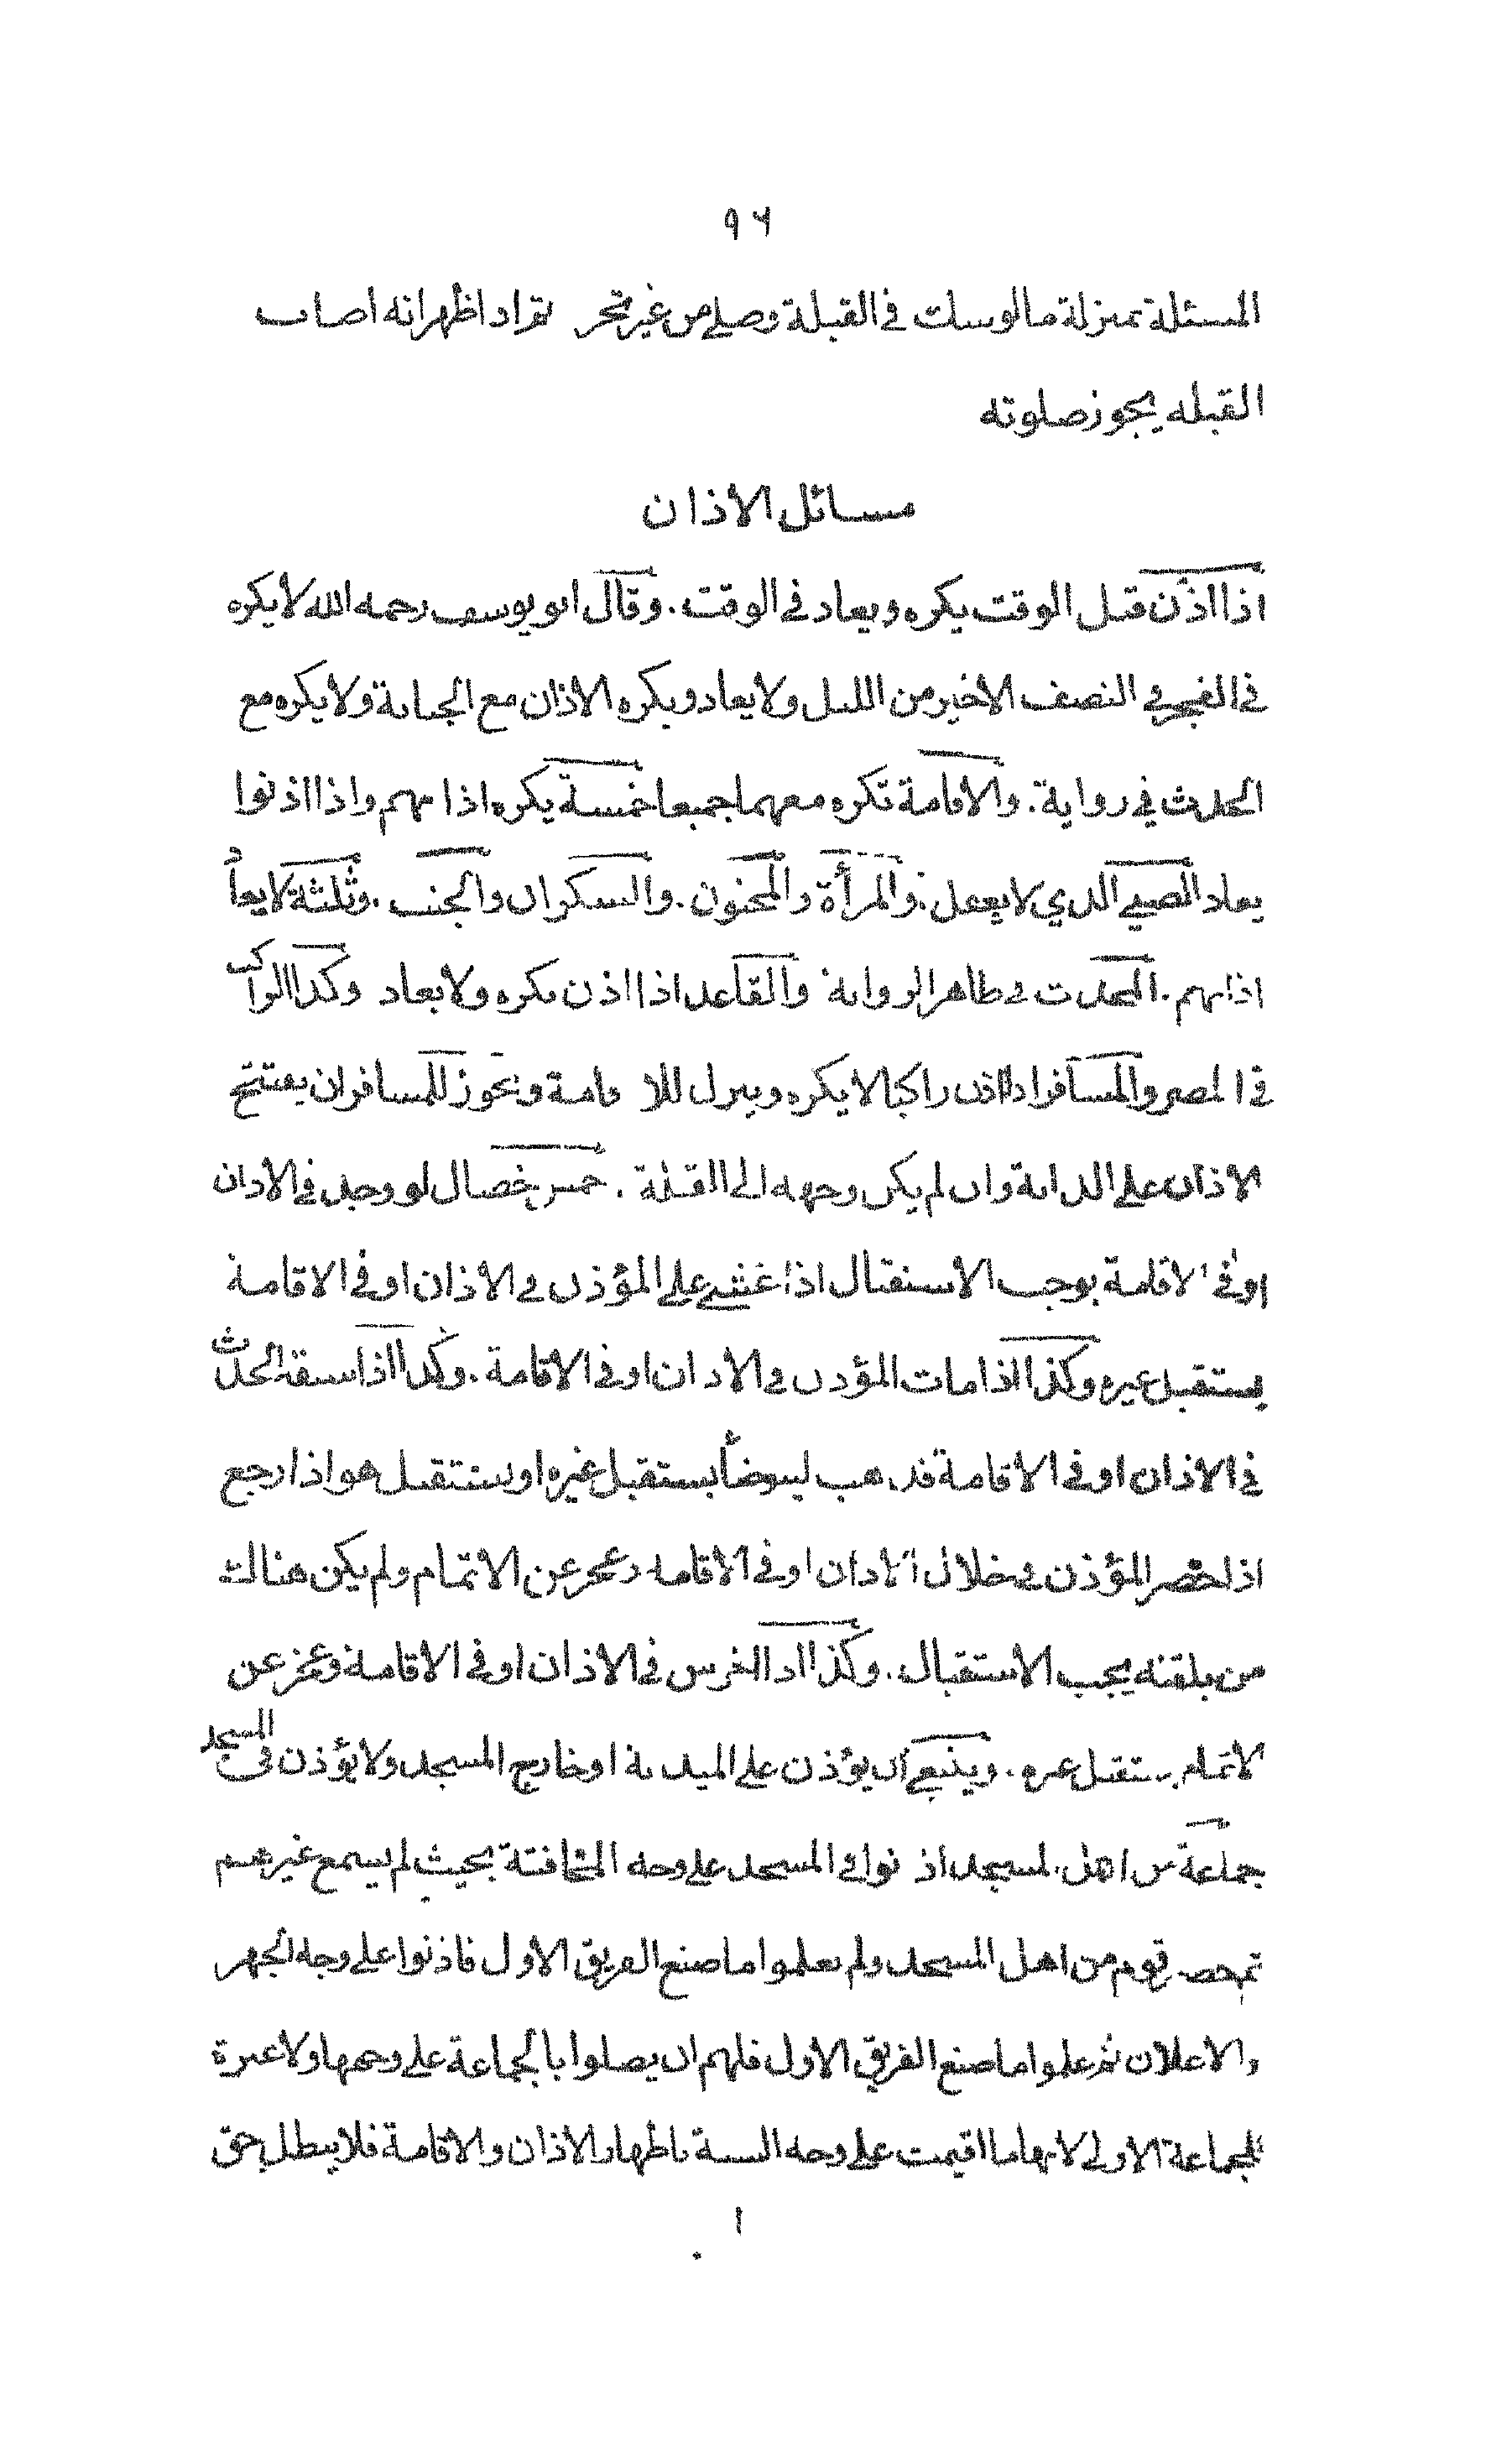 ٩٦
المسئلة تمنزلة مالوسات في القبلة وصلى من غير تحر ثم اذا ظهرانه اصاب
القبله يجوز صلوته
مسائل الاذان
اذا اذن قبل الوقت يكره ويعاد في الوقت. وقال ابو يوسف رحمه الله لا يكره
في الفجر في النصف الاخير من الليل ولا يعاد ويكره الاذان مع الجنابة ولا يكره مع
الحدث في رواية. والاقامة تكره معهما جميعا خمسة يكره اذانهم واذا اذنوا
يعاد الصبي الذي لا يعقل. والمرأة والمجنون. والسكران والجنب. وثلثة لا يعاد
اذانهم. المحدث في ظاهر الرواية والقاعد اذا اذن يكره ولا يعاد وكذا الراكب
في المصر والمسافر اذا اذن راكبا لا يكره وينزل للاقامة ويجوز للمسافر ان يفتتح
الاذان على الدابة وان لم يكن وجهه الى القبلة. خمس خصال لو وجد في الاذان
اوفي الاقامة يوجب الاستقبال اذا غشي على المؤذن في الاذان اوفي الاقامة
يستقبل غيره وكذا اذا مات المؤذن في الاذان اوفي الاقامة. وكذا اذا سبقه الحدث
في الاذان اوفي الاقامة فذهب ليتوضأ يستقبل غيره او يستقبل هو اذا رجع
اذا حصر المؤذن في خلال الاذان اوفي الاقامة وعجز عن الاتمام ولم يكن هناك
من يلقنه يجب الاستقبال. وكذا اذا اخرس في الاذان اوفي الاقامة وعجز عن
الاتمام يستقبل غيره. وينبغي ان يؤذن على الميذنة اوخارج المسجد ولا يؤذن في المسجد
جماعة من اهل المسجد اذنوا في المسجد على وجه المخافتة بحيث لم يسمع غيرهم
ثم حضر قوم من اهل المسجد ولم يعلموا ما صنع الفريق الاول فاذنوا على وجه الجهر
والاعلان ثم علموا ما صنع الفريق الاول فلهم ان يصلوا بالجماعة على وجهها ولا عبرة
للجماعة الاولى لانها ما اقيمت على وجه السنة باظهار الاذان والاقامة فلا يبطل حق
١